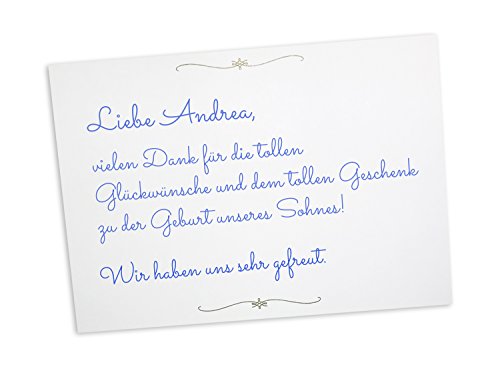 Liebe Andrea,
vielen Dank für die tollen
Glückwünsche und dem tollen Geschenk
zu der Geburt unseres Sohnes!
Wir haben uns sehr gefreut.